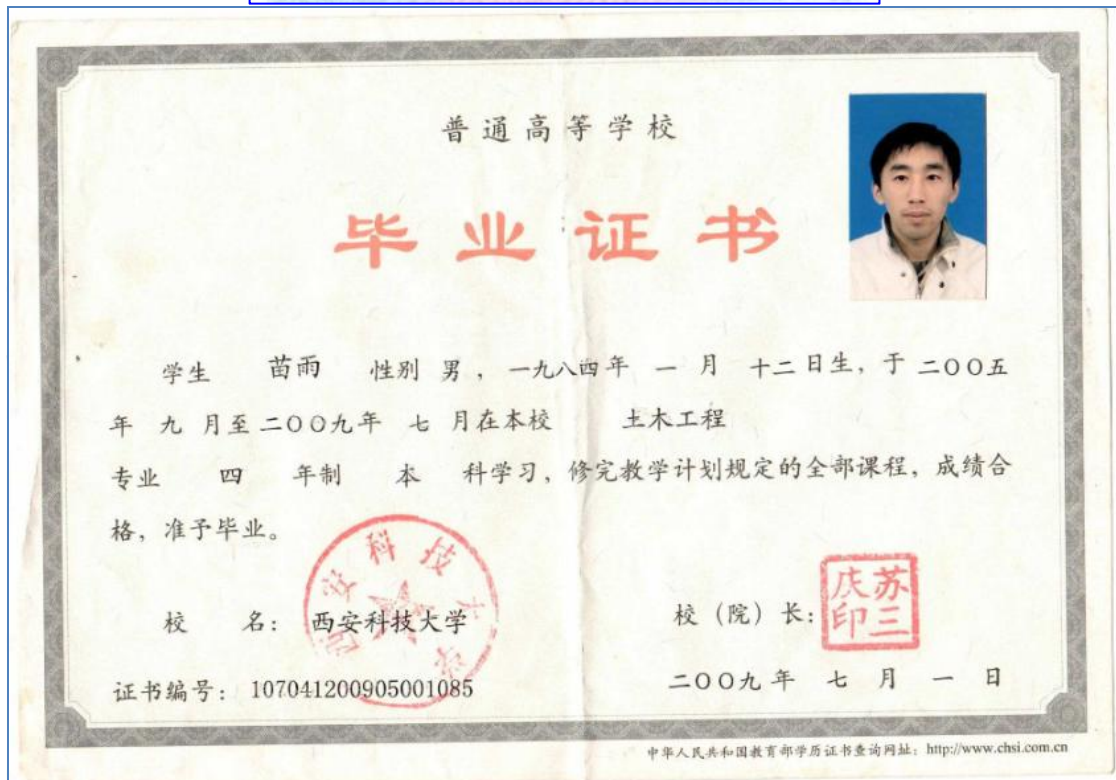 普通高等学校
毕业证书
学生 苗雨 性别 男，一九八四年 一 月 十二日生，于 二〇〇五
年 九 月至 二〇〇九年 七 月在本校 土木工程
专业 四 年制 本 科学习，修完教学计划规定的全部课程，成绩合
格，准予毕业。
西安科技大学
校 名： 西安科技大学
校（院）长：
苏三庆印
证书编号： 107041200905001085
二〇〇九年 七 月 一 日
中华人民共和国教育部学历证书查询网址：http://www.chsi.com.cn